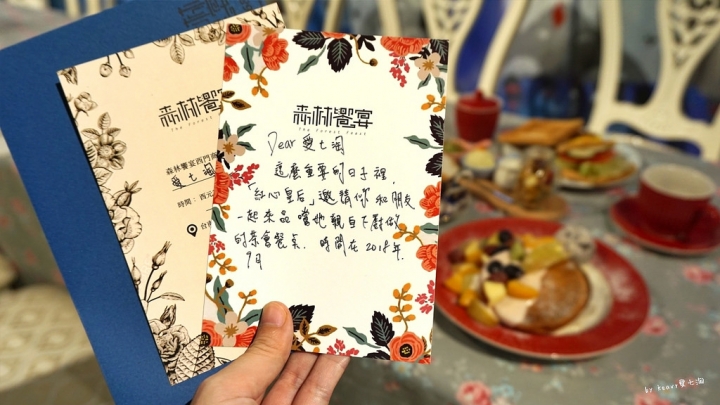 森林饗宴
THE FOREST FEAST
Dear 愛七淘
這麼重要的日子裡,
「紅心皇后」邀請你和朋友
一起來品嚐她親自下廚做
的茶會餐点. 時間在2018年.
9月
森林饗
THE FOREST
森林饗宴西門
愛七
時間：西元
台
by tenor愛七淘